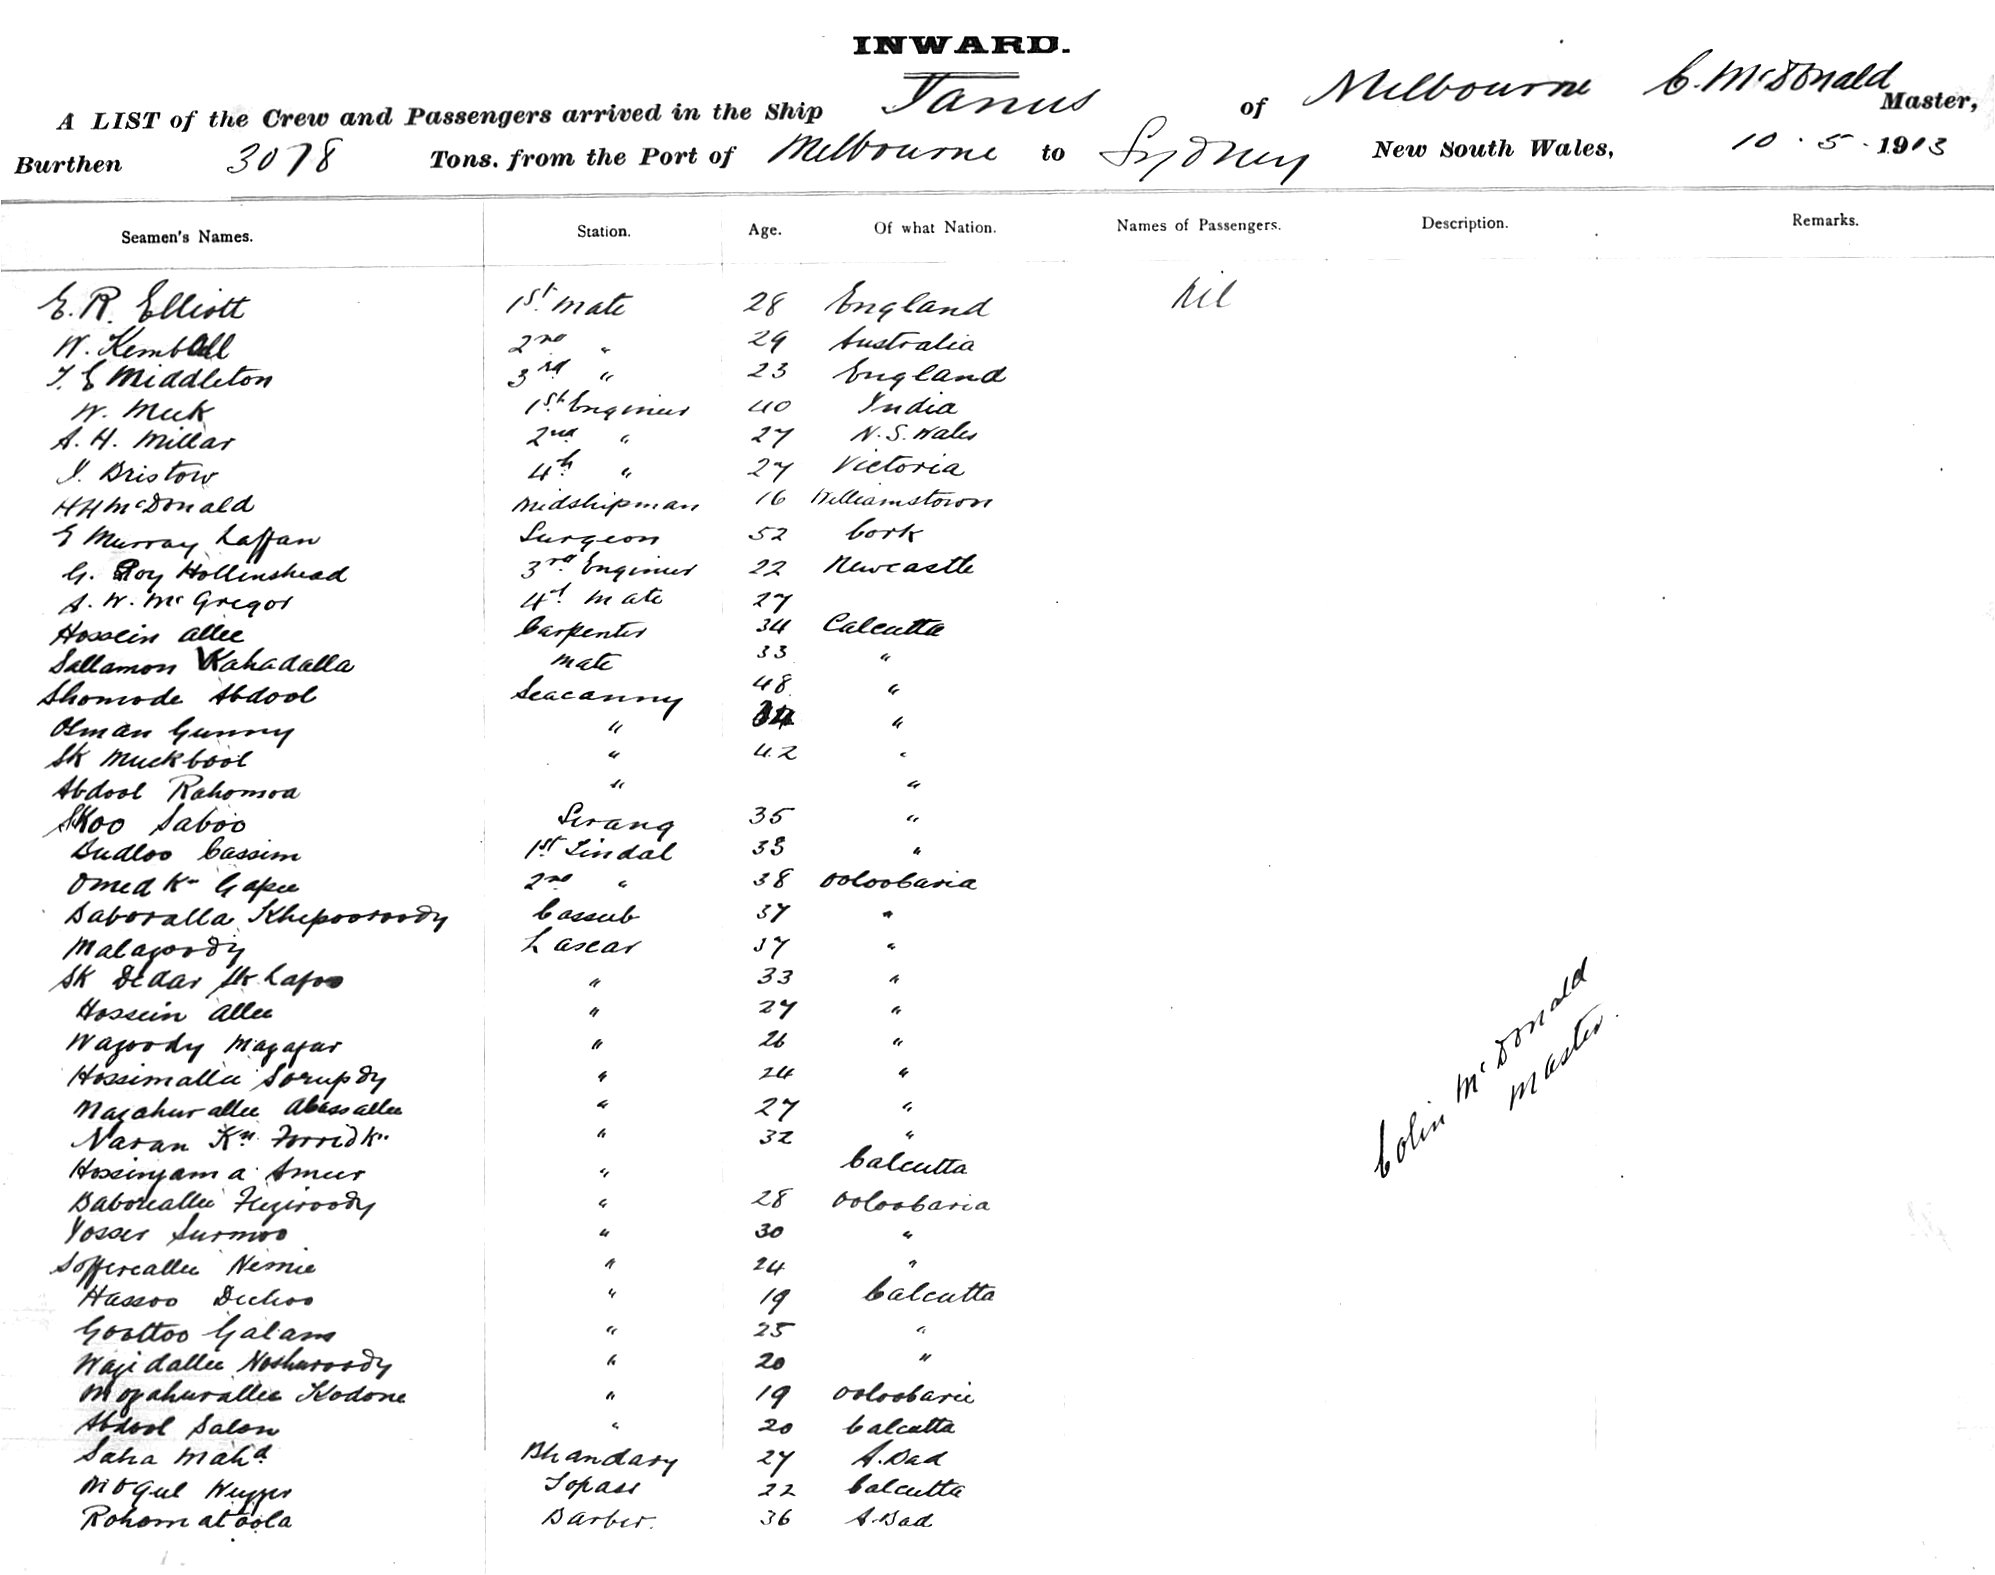 INWARD.
A LIST of the Crew and Passengers arrived in the Ship Janus of Melbourne C. McDonald Master,
Burthen 3078 Tons. from the Port of Melbourne to Sydney New South Wales, 10 . 5 . 1913
Seamen's Names. Station. Age. Of what Nation. Names of Passengers. Description. Remarks.
E. R. Elliott 1st Mate 28 England Nil
W. Kemball 2nd " 29 Australia
T. E Middleton 3rd " 23 England
W. Meek 1st Engineer 40 India
A. H. Millar 2nd " 27 N. S. Wales
J. Bristow 4th " 27 Victoria
H H McDonald Midshipman 16 Williamstown
E Murray Laffan Surgeon 52 Cork
G. Roy Hollinshead 3rd Engineer 22 Newcastle
A. W. McGregor 4th Mate 27
Hossein Allee Carpenter 34 Calcutta
Sallamon Kahadalla Mate 33 "
Shomode Abdool Seacunny 48 "
Osman Gunny " "
Sk Muckbool " 42 "
Abdool Rahomoa " "
Skoo Saboo Serang 35 "
Budloo Cassim 1st Tindal 33 "
Omed Kn Gapee 2nd " 38 Ooloobaria
Baboralla Khepooroody Cassub 37 "
Malagoody Lascar 37 "
Sk Dedar Sk Lafoo " 33 "
Hossein Allee " 27 "
Wazoody Mazafar " 26 "
Hossimallee Sorupdy " 24 "
Mazahurallee Abassallee " 27 "
Naran Kn Forrid Kn " 32 "
Hossinjama Ameer " Calcutta
Baboreallee Feziroody " 28 Ooloobaria
Yosser Surmoo " 30 "
Soffereallee Nemie " 24 "
Hassoo Dechoo " 19 Calcutta
Goottoo Galam " 25 "
Wajidallee Noshuroody " 20 "
Mozahurallee Kodone " 19 Ooloobarie
Abdool Salon " 20 Calcutta
Saha Mahd Bhandary 27 A. Bad
Mogul Topass 22 Calcutta
Rohomatoola Barber. 36 A. Bad
Colin McDonald
Master.